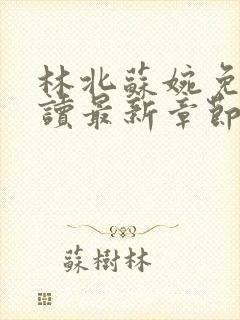 林北蘇婉免
讀最新章節
蘇樹林